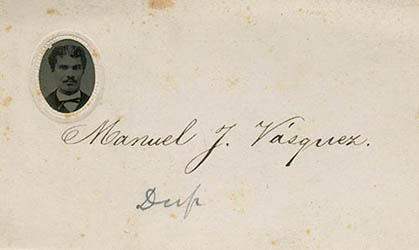 Manuel J. Vásquez.
Dup